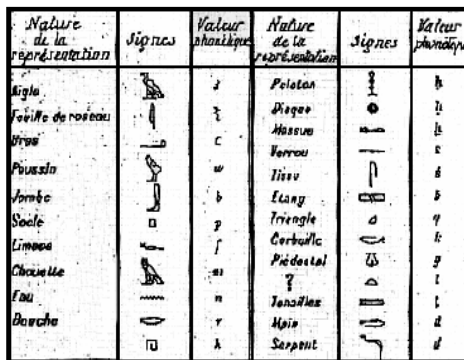 Nature de la représentation Signes Valeur phonétique Nature de la représentation Signes Valeur phonétique
Aigle Peloton ḥ
Feuille de roseau Disque
Bras Massue
Poussin w Verrou s
Jambe b Tissu ś
Socle p Etang š
Limace f Triangle q
Chouette m Corbeille k
Eau n Piédestal g
Bouche r ? t
h Tenailles ṯ
Main d
Serpent